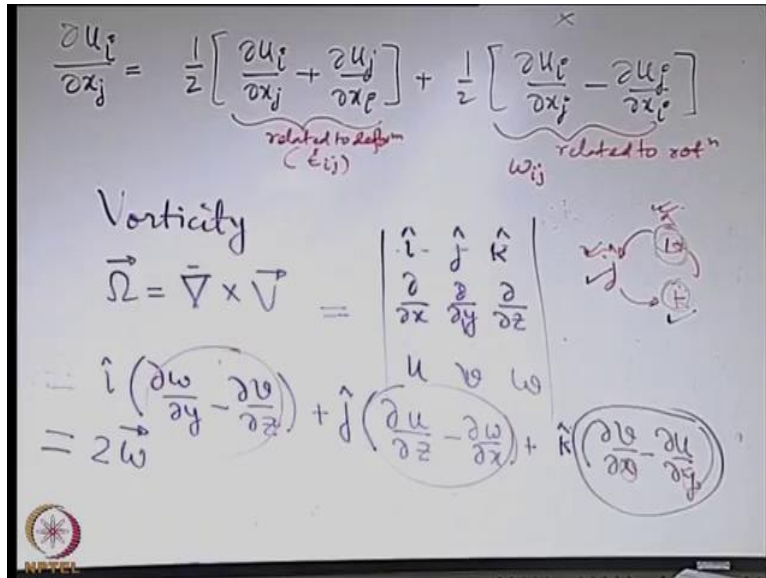 ∂u_i/∂x_j = 1/2 [∂u_i/∂x_j + ∂u_j/∂x_i] + 1/2 [∂u_i/∂x_j − ∂u_j/∂x_i]
related to defmⁿ related to rotⁿ
(ε̇_ij) ω_ij
Vorticity
Ω⃗ = ∇̄ × V⃗ = | î ĵ k̂ |
| ∂/∂x ∂/∂y ∂/∂z |
| u v w |
= î (∂w/∂y − ∂v/∂z) + ĵ (∂u/∂z − ∂w/∂x) + k̂ (∂v/∂x − ∂u/∂y)
= 2ω⃗
NPTEL